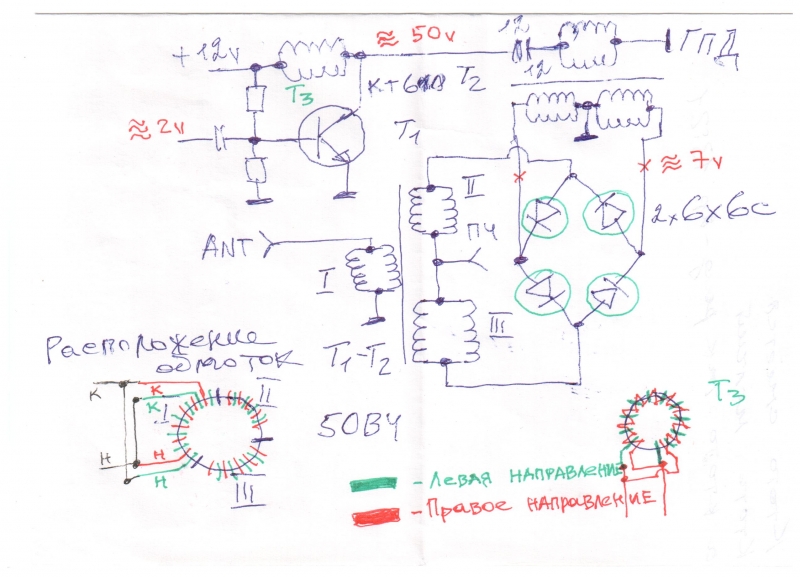 ≈ 50v
12
12
ГПД
+12v
T3
T2
≈ 2v
T1
≈ 7v
II
ПЧ
2x6x6c
ANT
I
III
T1-T2
обмоток
К
К
К
I
II
Н
Н
Н
III
50ВЧ
T3
- Левая направление
- Правое направление